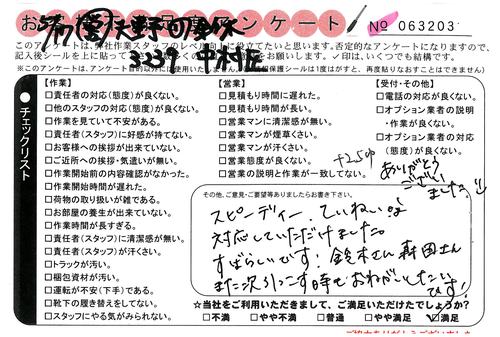 No 063203
3239 中村匠
このアンケートは、弊社作業スタッフのレベル向上に役立てたいと思います。否定的なアンケートになりますので、
記入後シールを上に貼って
お願いします。✓印は、いくつでも結構です。
※このアンケートは、アンケート目的以外に使用いたしません。
保護シールは1度がすと、再度貼りなおすことはできません)
チェックリスト
【作業】
□責任者の対応(態度)が良くない。
□他のスタッフの対応(態度)が良くない。
□作業を見ていて不安がある。
□責任者(スタッフ)に好感が持てない。
□お客様への挨拶が出来ていない。
□ご近所への挨拶・気遣いが無い。
□作業開始前の内容確認がなかった。
□作業開始時間が遅れた。
□荷物の取り扱いが雑である。
□お部屋の養生が出来ていない。
□作業時間が長すぎる。
□責任者(スタッフ)に清潔感が無い。
□責任者(スタッフ)が汗くさい。
□トラックが汚い。
□梱包資材が汚い。
□運転が不安(下手)である。
□靴下の履き替えをしてない。
□スタッフにやる気がみられない。
【営業】
□見積もり時間に遅れた。
□見積もり時間が長い。
□営業マンに清潔感が無い。
□営業マンが煙草くさい。
□営業マンが汗くさい。
□営業態度が良くない。
□営業の説明と作業が一致してない。
【受付・その他】
□電話の対応が良くない。
□オプション業者の説明
・作業が良くない。
□オプション業者の対応
(態度)が良くない。
ありがとう
ございました
その他、ご意見・ご要望等ありましたらお書き下さい。
スピーディー、ていねいな
対応していただけました。
すばらしいです! 鈴木さん 森田さん
また次引っこす時もおねがいしたい
です!
☆当社をご利用いただきまして、ご満足いただけたでしょうか?
□不満 □やや不満 □普通 □やや満足 ☑満足